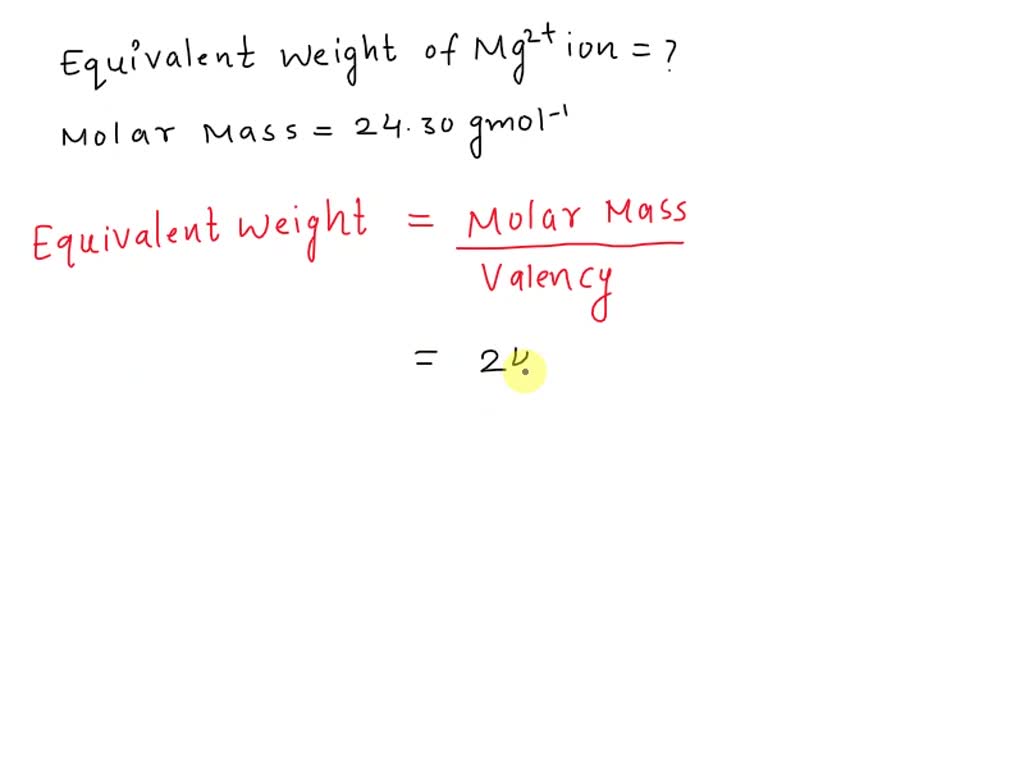 Equivalent weight of Mg²⁺ ion = ?
Molar Mass = 24.30 gmol⁻¹
Equivalent weight = Molar Mass
Valency
= 24